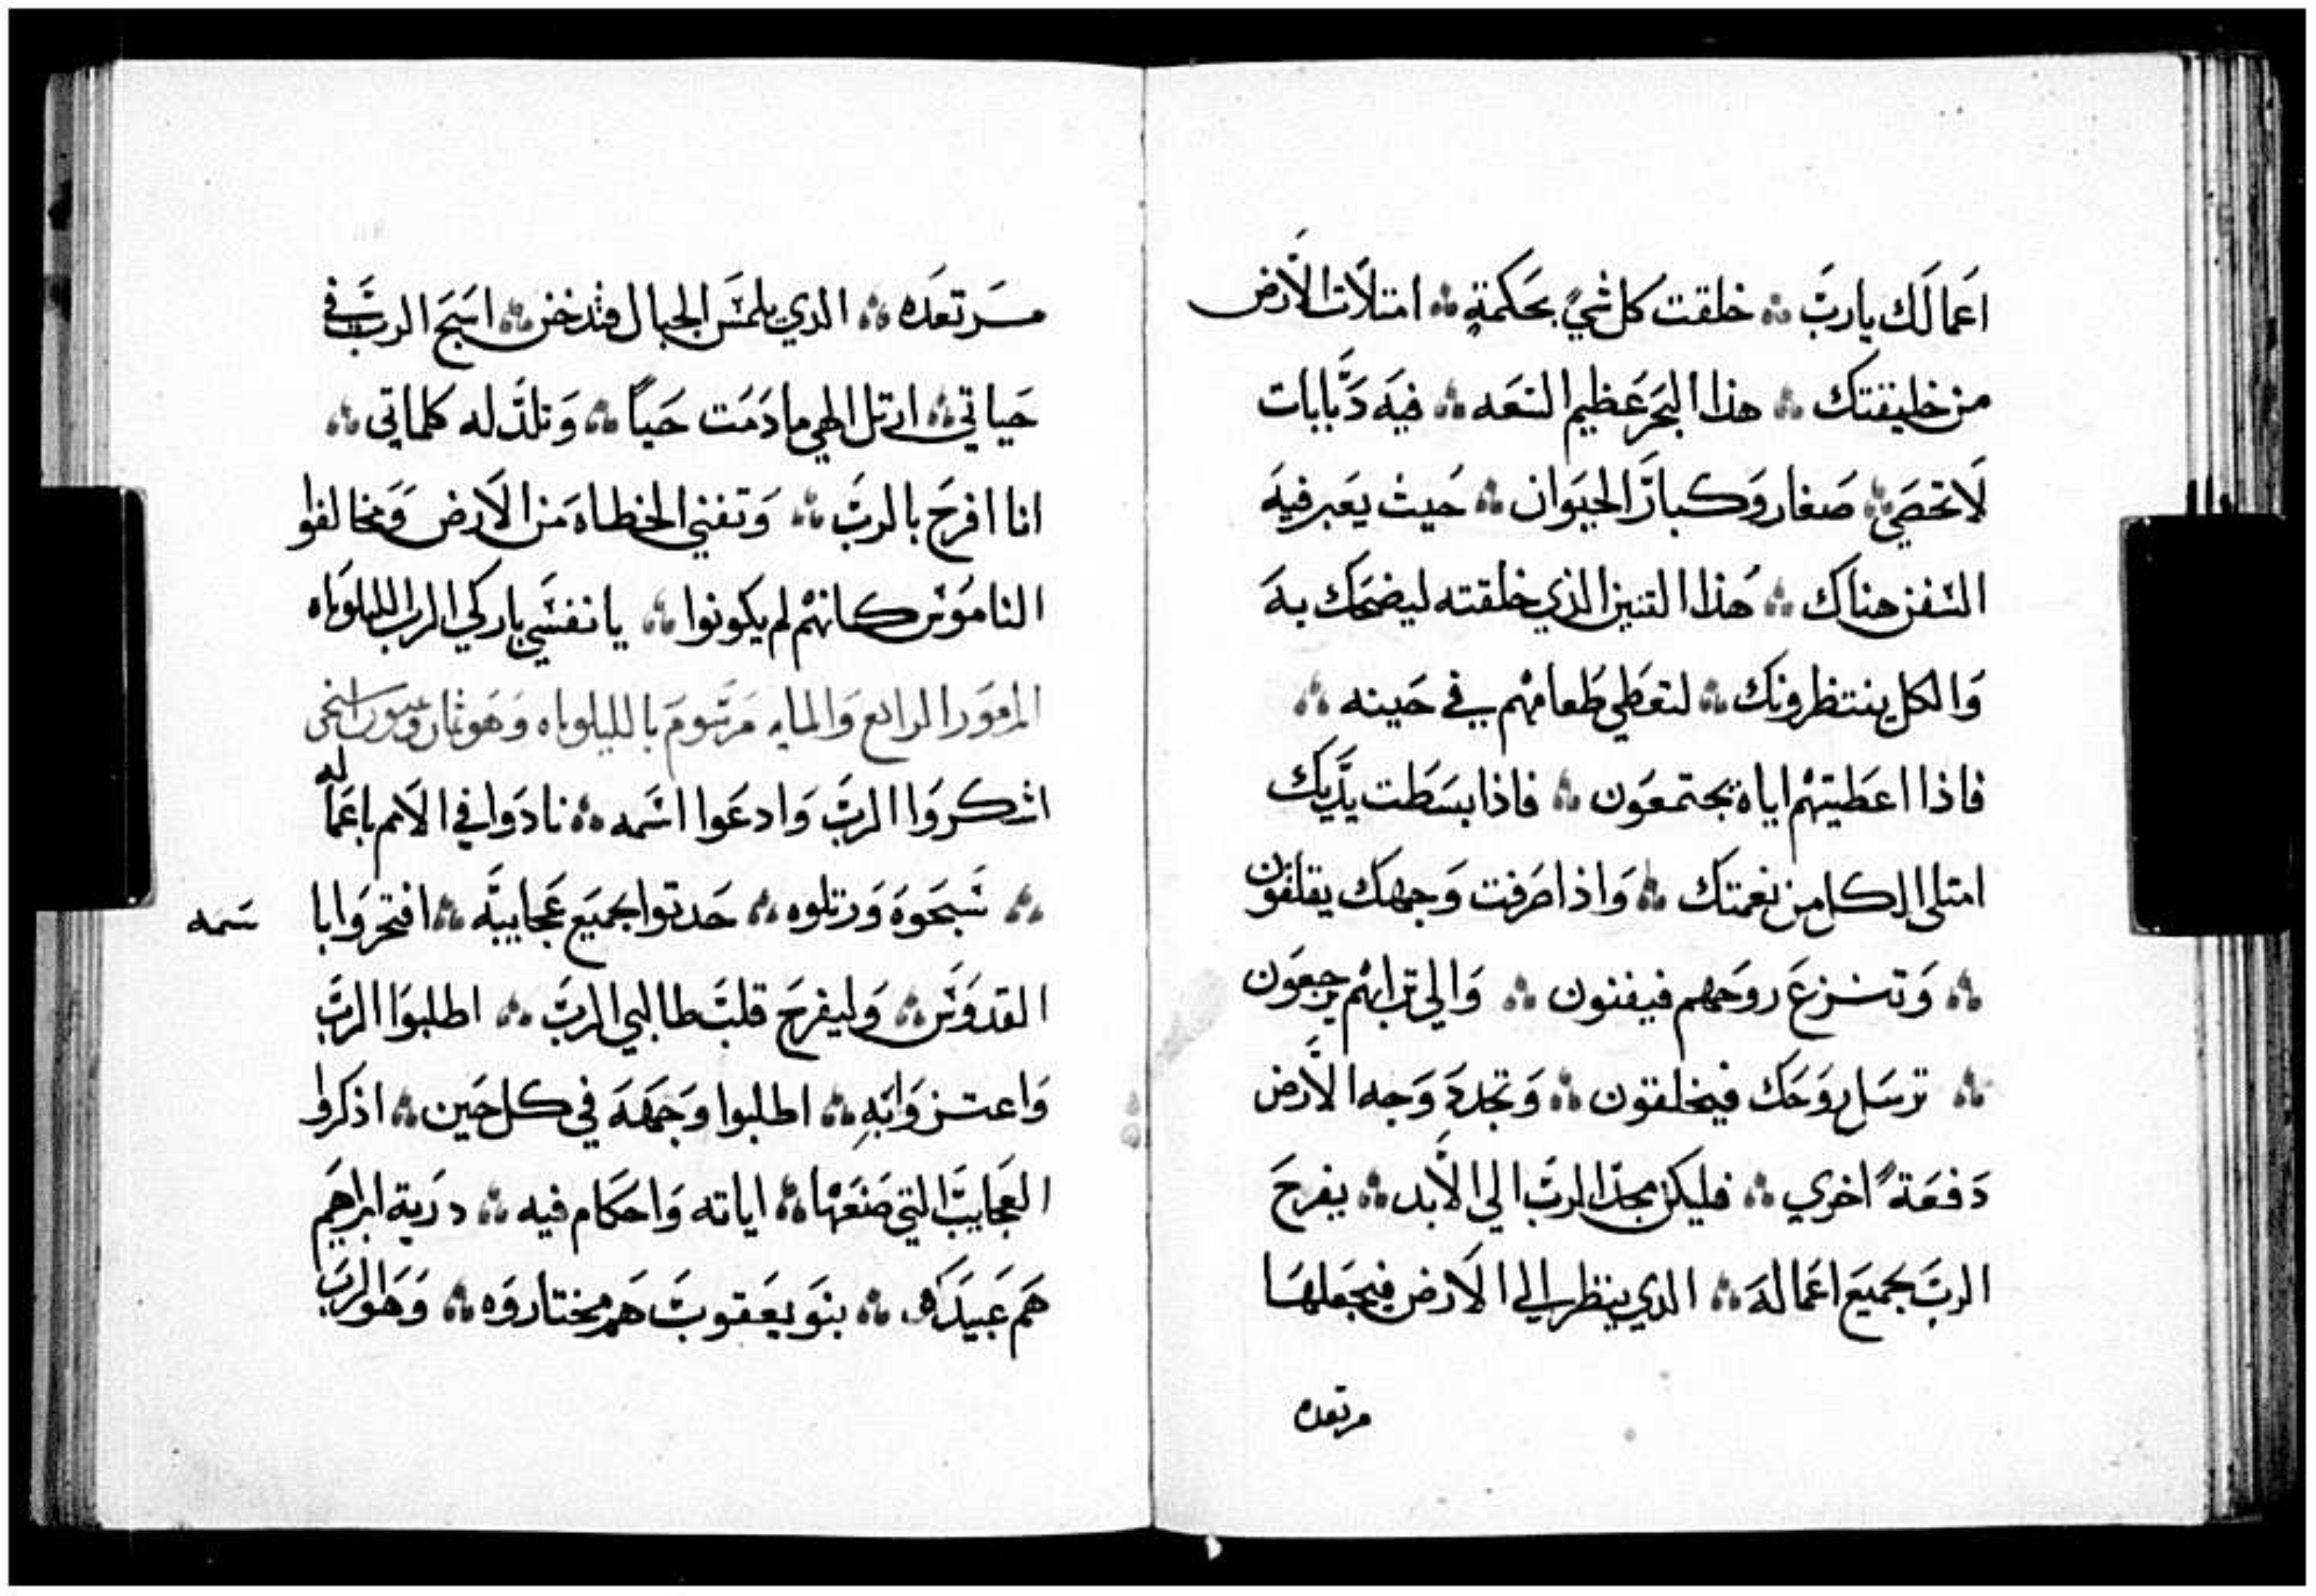 اعمالك يارب ۞ خلقت كل شيً بحكمةٍ ۞ امتلات الارض
من خليقتك ۞ هذا البحر عظيم السعه ۞ فيه دبابات
لا تحصي ۞ صغار وكبار الحيوان ۞ حيث يعبر فيه
السفن هناك ۞ هذا التنين الذي خلقته ليضحك به
والكل ينتظرونك ۞ لتعطي طعامهم في حينه ۞
فاذا اعطيتهم اياه يجتمعون ۞ فاذا بسطت يديك
امتلي الكل من نعمتك ۞ واذا صرفت وجهك يقلقون
۞ وتنزع روحهم فيفنون ۞ والي ترابهم يرجعون
۞ ترسل روحك فيخلقون ۞ وتجدد وجه الارض
دفعةً اخري ۞ فليكن مجد الرب الي الابد ۞ يفرح
الرب بجميع اعماله ۞ الدي ينظر الي الارض فيجعلها
مرتعده
مرتعده ۞ الدي يلمس الجبال فتدخن ۞ اسبح الرب في
حياتي ۞ ارتل الهي ما دمت حياً ۞ وتلذ له كلماتي ۞
انا افرح بالرب ۞ وتفني الخطاه من الارض ومخالفوا
الناموس كانهم لم يكونوا ۞ يا نفسي باركي الرب الليلوياه
المزمور الرابع والمايه مرسوم بالليلوياه وهو ثمان
اشكروا الرب وادعوا اسمه ۞ نادوا في الامم باعماله
۞ سبحوه ورتلوه ۞ حدتوا بجميع عجايبه ۞ افتخروا با
سمه
القدوس ۞ وليفرح قلب طالبي الرب ۞ اطلبوا الرب
واعتزوا به ۞ اطلبوا وجهه في كل حين ۞ اذكروا
العجايب التي صنعها ۞ اياته واحكام فيه ۞ درية ابراهيم
هم عبيده ۞ بنو يعقوب هم مختاروه ۞ وهو الرب